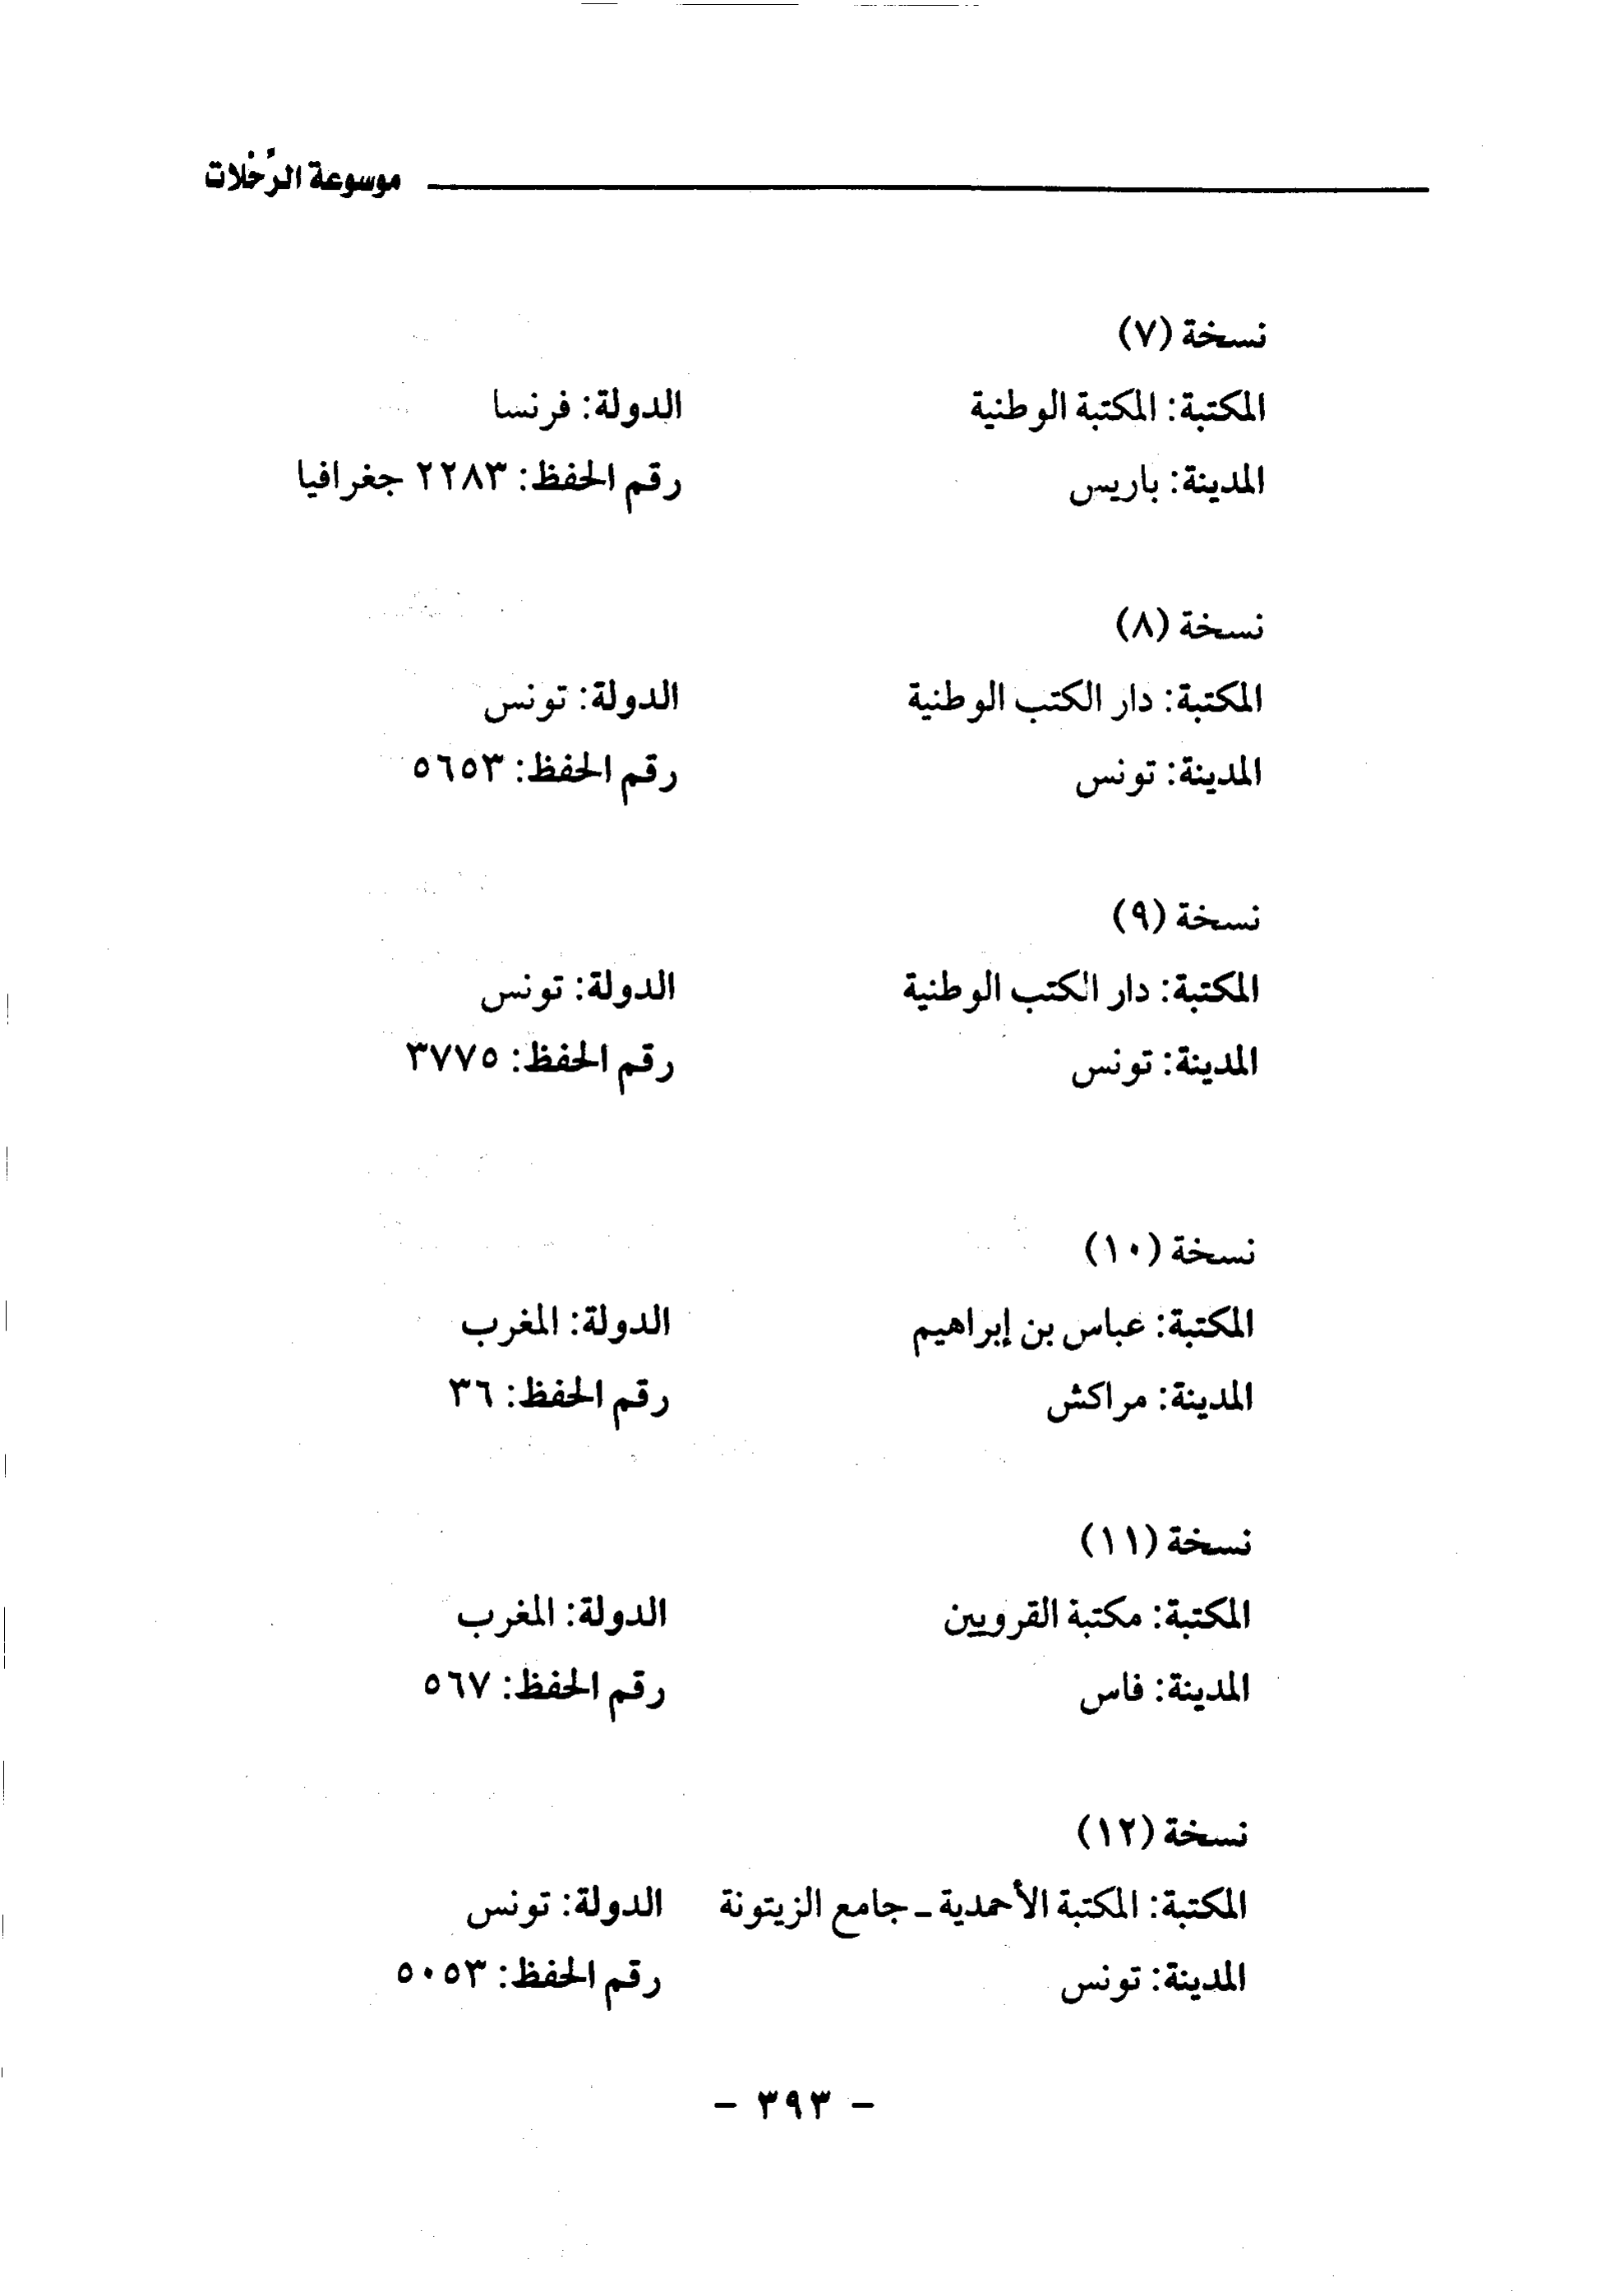 موسوعة الرّحلات
نسخة (٧)
المكتبة: المكتبة الوطنية الدولة: فرنسا
المدينة: باريس رقم الحفظ: ٢٢٨٣ جغرافيا
نسخة (٨)
المكتبة: دار الكتب الوطنية الدولة: تونس
المدينة: تونس رقم الحفظ: ٥٦٥٣
نسخة (٩)
المكتبة: دار الكتب الوطنية الدولة: تونس
المدينة: تونس رقم الحفظ: ٣٧٧٥
نسخة (١٠)
المكتبة: عباس بن إبراهيم الدولة: المغرب
المدينة: مراكش رقم الحفظ: ٣٦
نسخة (١١)
المكتبة: مكتبة القرويين الدولة: المغرب
المدينة: فاس رقم الحفظ: ٥٦٧
نسخة (١٢)
المكتبة: المكتبة الأحمدية ـ جامع الزيتونة الدولة: تونس
المدينة: تونس رقم الحفظ: ٥٠٥٣
- ٣٩٣ -